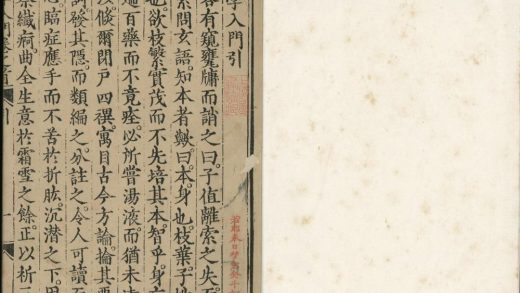 學入門引
客有窺甕牖而誚之曰子值離索之失
素問玄語知本者歟曰本身也枝葉子
也欲枝繁實茂而不先培其本智乎身
遍百藥而不竟痊必所嘗湯液而猶未
後爾閉戶四禩寓目古今方論掄其要
詞發其隱而類編之分註之令人可讀而
心臨症應手而不苦於折肱沉潛之下
藥緘疴曲全生意於霜雪之餘正以祈
入門卷之首 一